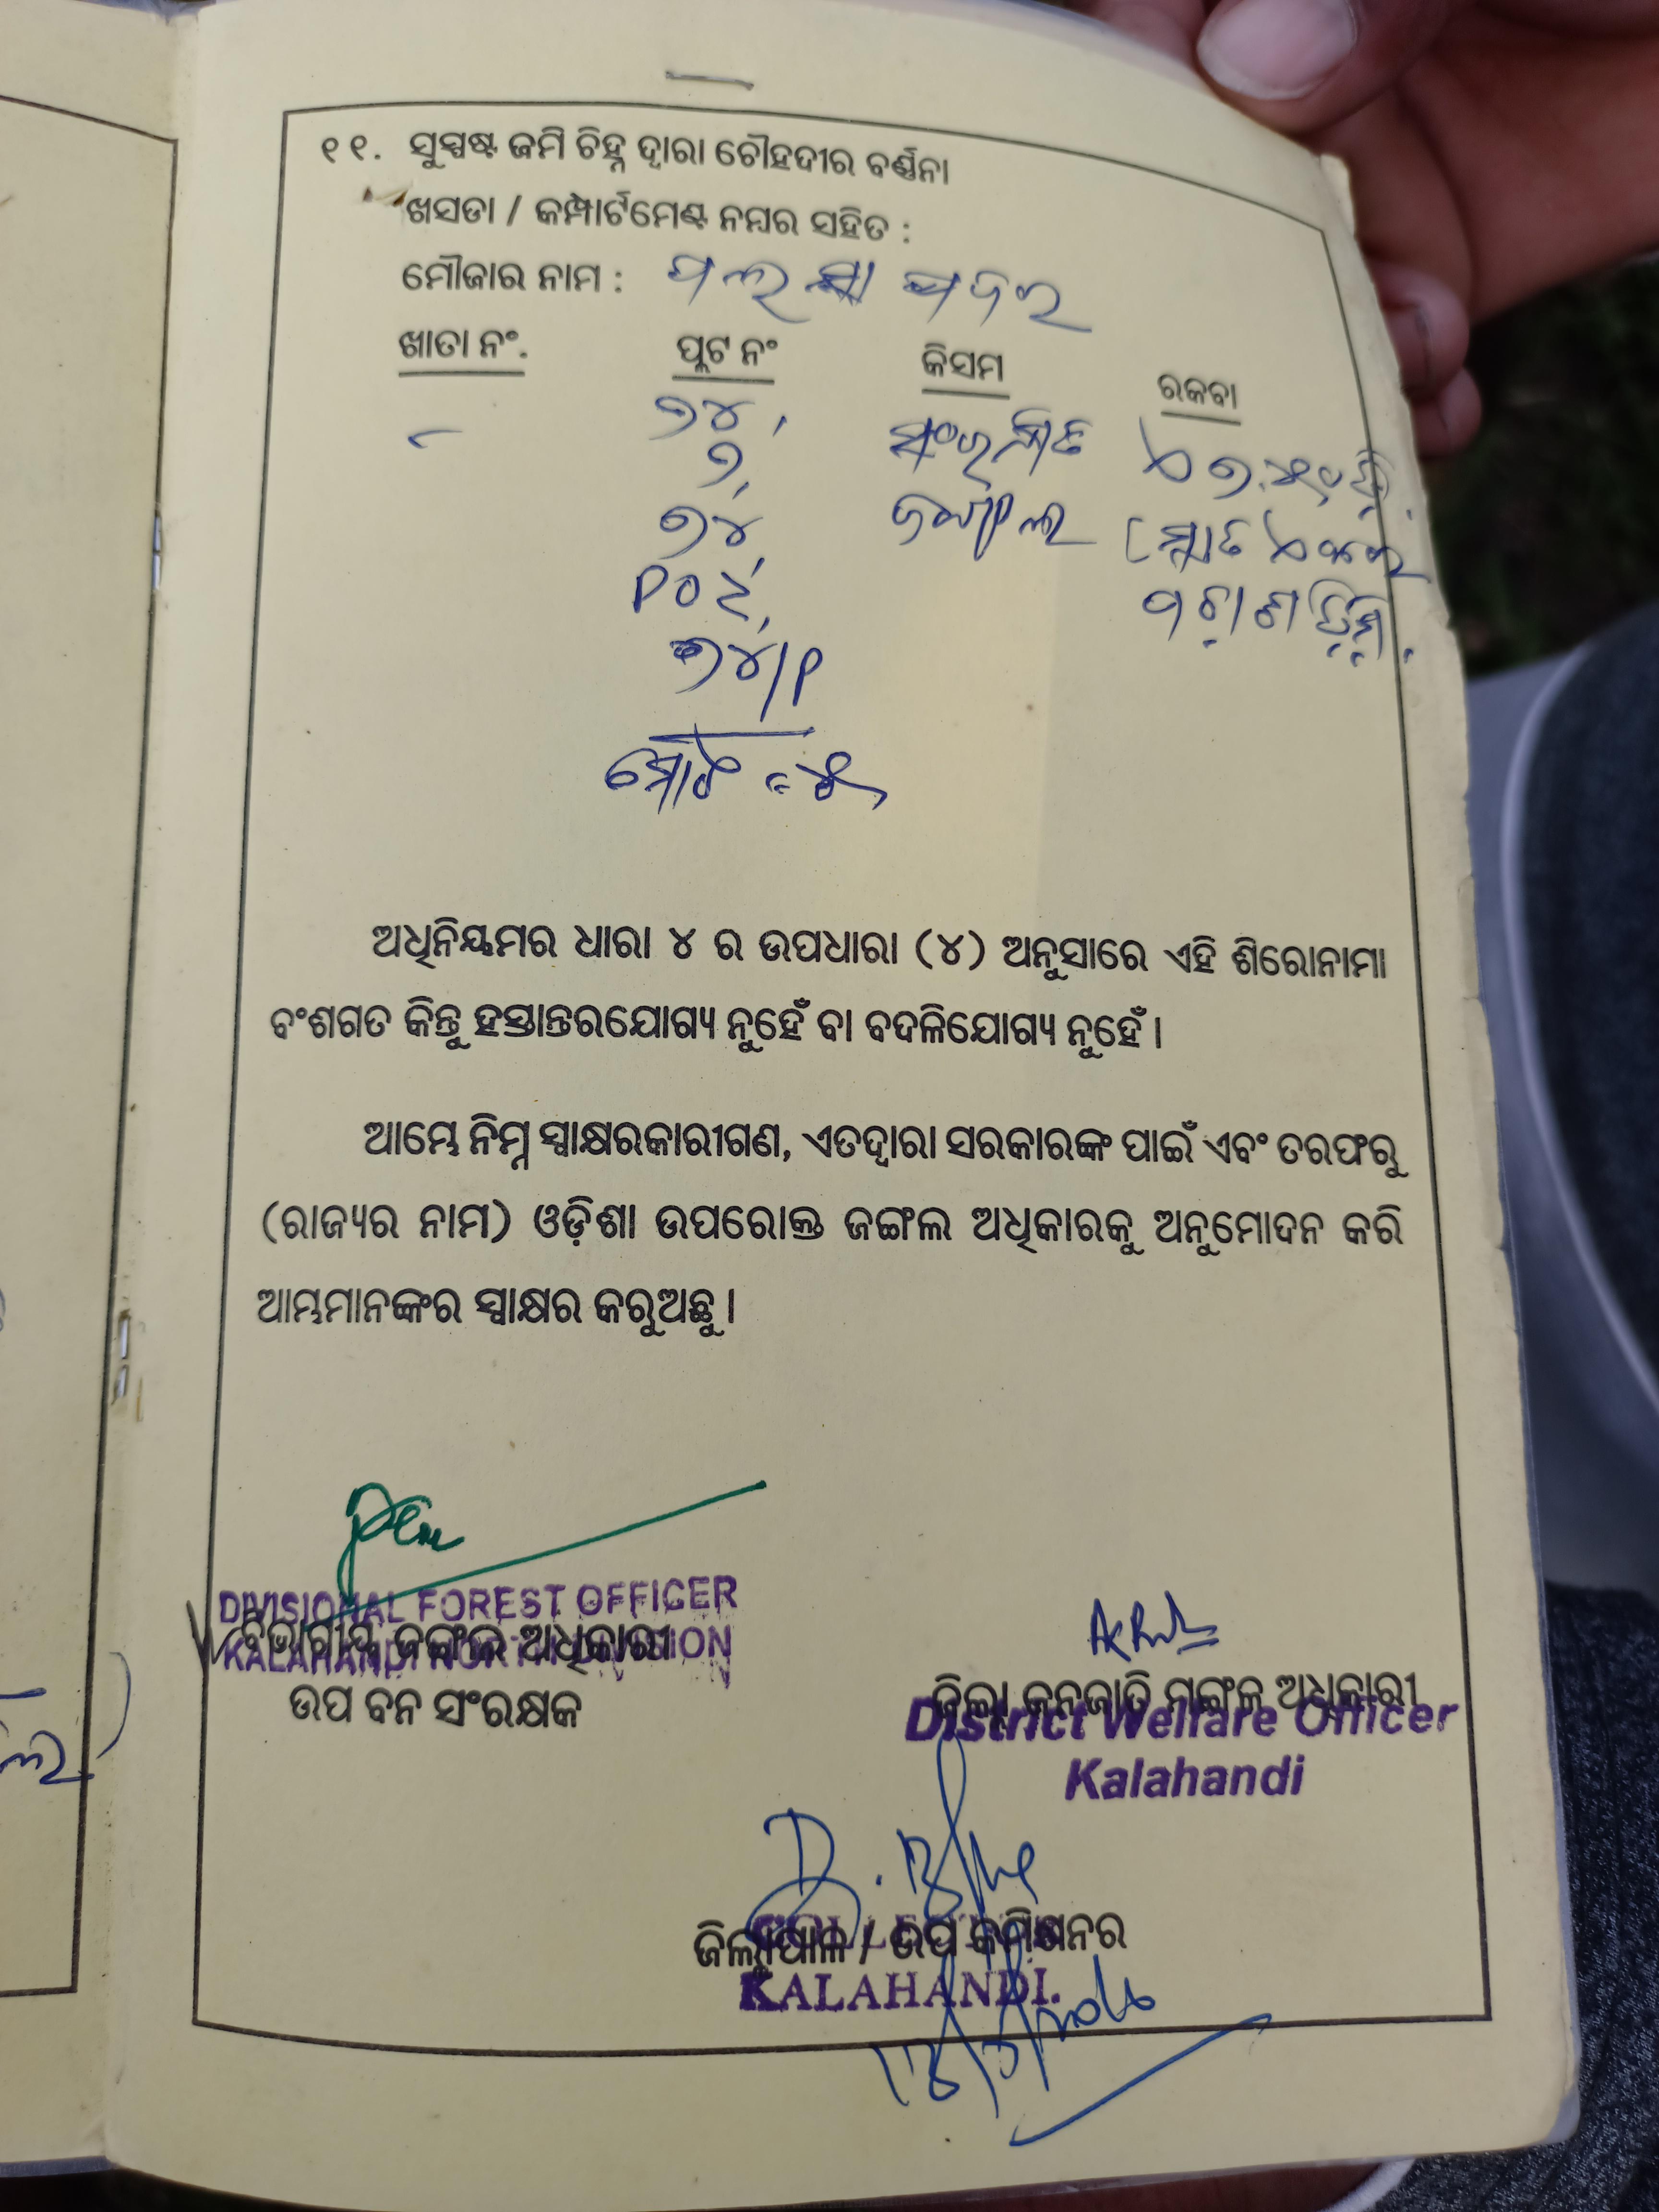 ୧୧. ସୁସ୍ପଷ୍ଟ ଜମି ଚିହ୍ନ ଦ୍ୱାରା ଚୌହଦୀର ବର୍ଣ୍ଣନା
ଖସଡା / କମ୍ପାର୍ଟମେଣ୍ଟ ନମ୍ବର ସହିତ :
ମୌଜାର ନାମ :
ଖାତା ନଂ. ପ୍ଲଟ ନଂ କିସମ ରକବା
୭୪, ସଂରକ୍ଷିତ
୭,
୭୪, ଜଙ୍ଗଲ
୭୪/P
ମୋଟ = ୫
ଅଧିନିୟମର ଧାରା ୪ ର ଉପଧାରା (୪) ଅନୁସାରେ ଏହି ଶିରୋନାମା
ବଂଶଗତ କିନ୍ତୁ ହସ୍ତାନ୍ତରଯୋଗ୍ୟ ନୁହେଁ ବା ବଦଳିଯୋଗ୍ୟ ନୁହେଁ ।
ଆମ୍ଭେ ନିମ୍ନ ସ୍ୱାକ୍ଷରକାରୀଗଣ, ଏତଦ୍ୱାରା ସରକାରଙ୍କ ପାଇଁ ଏବଂ ତରଫରୁ
(ରାଜ୍ୟର ନାମ) ଓଡ଼ିଶା ଉପରୋକ୍ତ ଜଙ୍ଗଲ ଅଧିକାରକୁ ଅନୁମୋଦନ କରି
ଆମ୍ଭମାନଙ୍କର ସ୍ୱାକ୍ଷର କରୁଅଛୁ ।
DIVISIONAL FOREST OFFICER
ବିଭାଗୀୟ ଜଙ୍ଗଲ ଅଧିକାରୀ
KALAHANDI NORTH DIVISION
ଉପ ବନ ସଂରକ୍ଷକ
ଜିଲ୍ଲା ଜନଜାତି ମଙ୍ଗଳ ଅଧିକାରୀ
District Welfare Officer
Kalahandi
ଜିଲ୍ଲାପାଳ / ଉପ କମିଶନର
KALAHANDI.